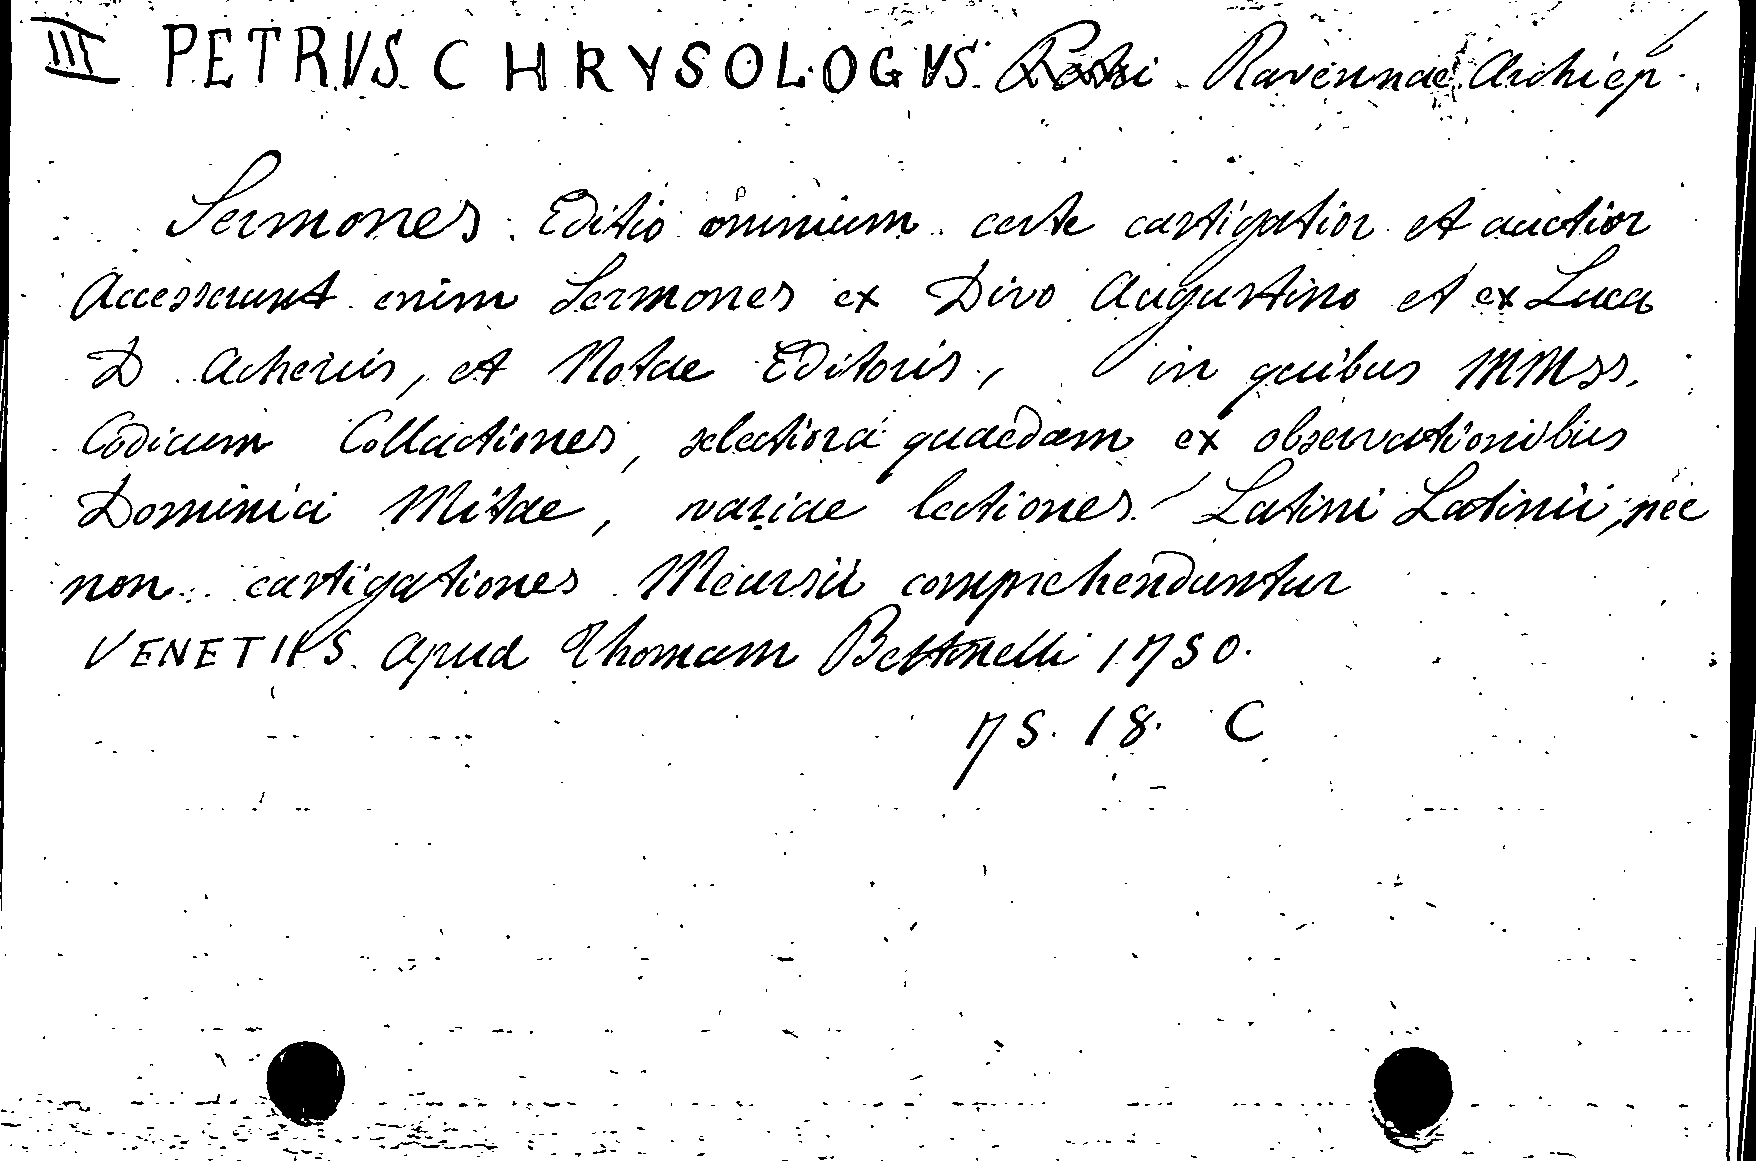 III PETRVS CHRYSOLOGVS. Ravennae Archiep.
Sermones. Editio omnium certe castigatior et auctior
Accesserunt enim Sermones ex Divo Augustino et ex Luca
D Acherius, et Notae Editoris, in quibus MMss.
Codicum Collactiones, selectiora quaedam ex observationibus
Dominici Mitae, variae lectiones Latini Latinii, nec
non castigationes Meursii comprehenduntur
VENETIIS. Apud Thomam Bettinelli 1750.
75. 18. C